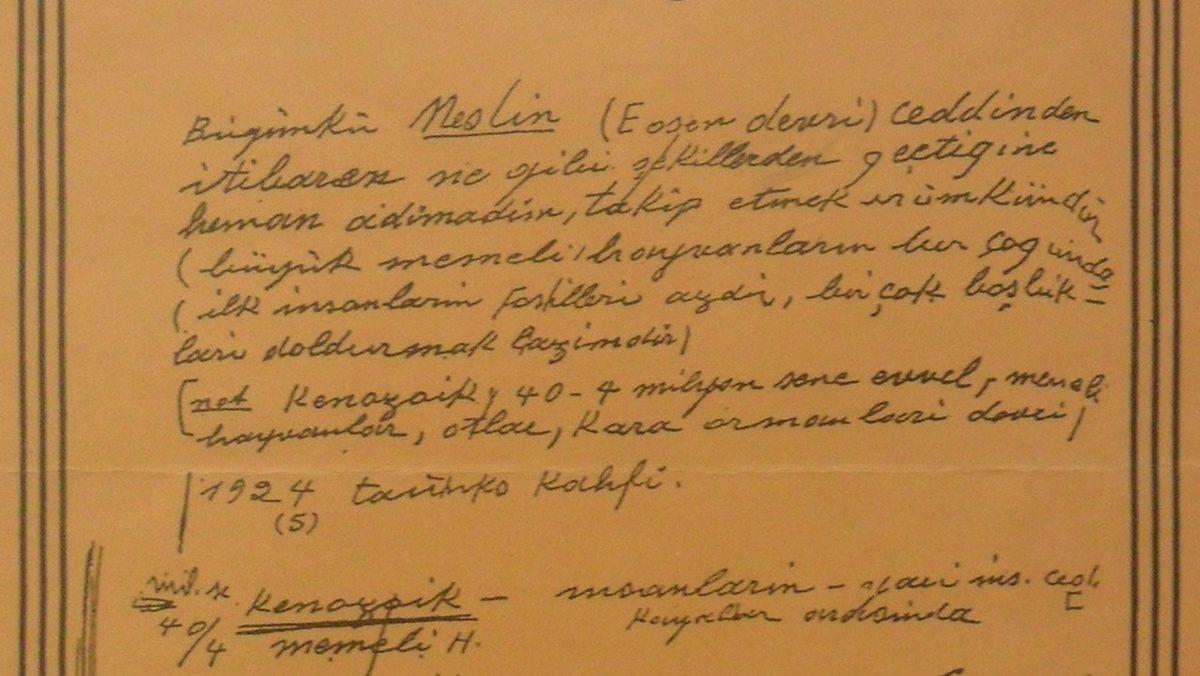 Bugünkü Neslin (Eosen devri) ceddinden
itibaren ne gibi şekillerden geçtiğine
heman adimadim, takip etmek mümkündür
(büyük memeli hayvanların bur çağında
(ilk insanların fosilleri azdir, bir çok boşluk-
lari doldurmak lazimdir)
[not Kenozoik, 40-4 milyon sene evvel, memeli
hayvanlar, otlar, Kara ormanlari devri)
1924
(5)
mil. se. Kenozoik - insanların - yani ins. ced.
40/4 memeli H. arasinda